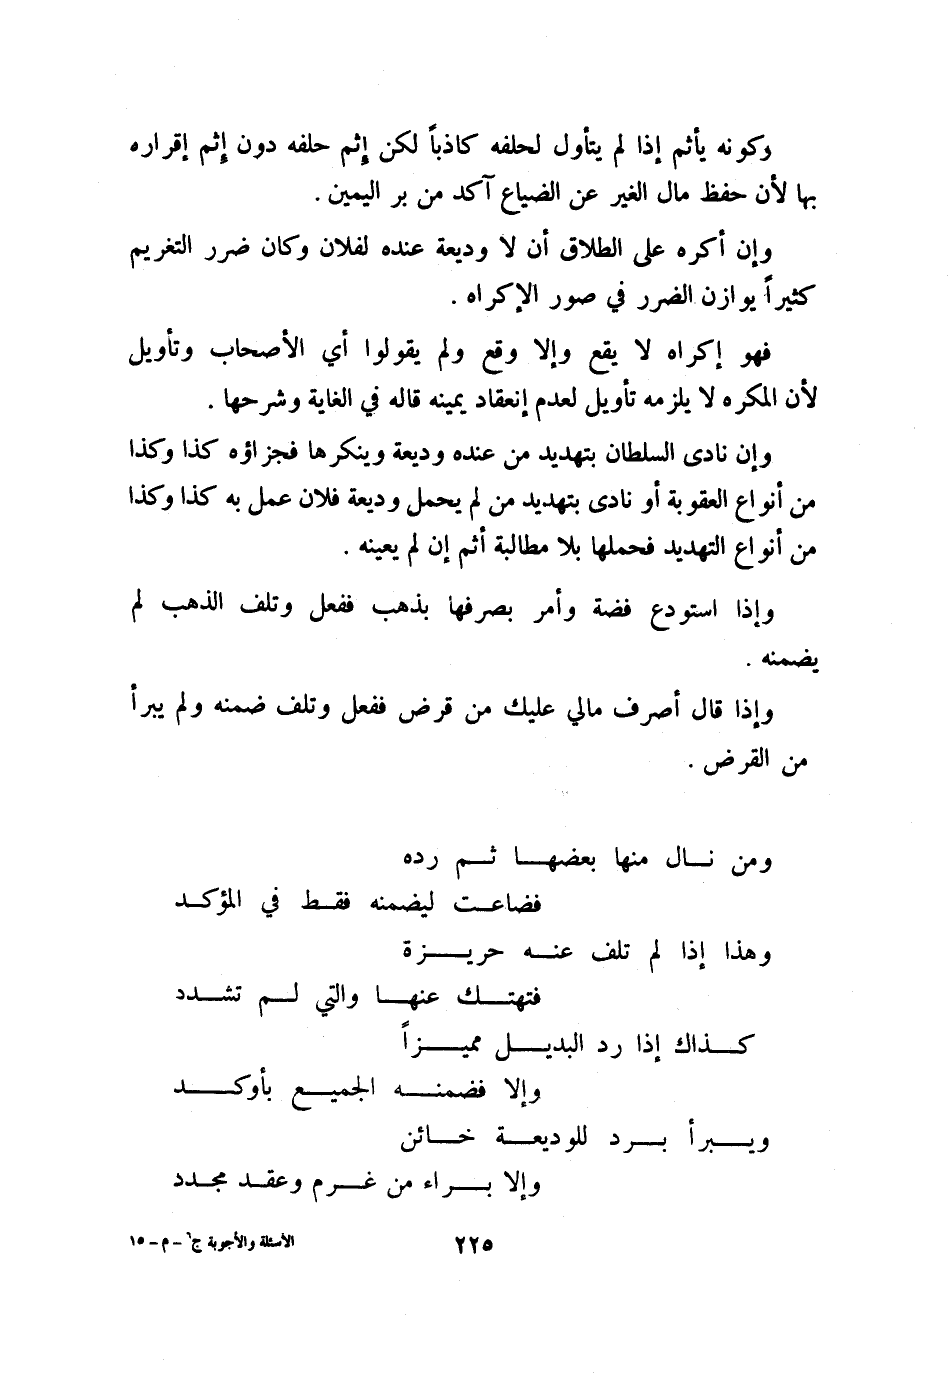 وكونه يأثم إذا لم يتأول لحلفه كاذباً لكن إثم حلفه دون إثم إقراره
بها لأن حفظ مال الغير عن الضياع آكد من بر اليمين .
وإن أكره على الطلاق أن لا وديعة عنده لفلان وكان ضرر التغريم
كثيراً يوازن الضرر في صور الإكراه .
فهو إكراه لا يقع وإلا وقع ولم يقولوا أي الأصحاب وتأويل
لأن المكره لا يلزمه تأويل لعدم إنعقاد يمينه قاله في الغاية وشرحها .
وإن نادى السلطان بتهديد من عنده وديعة وينكرها فجزاؤه كذا وكذا
من أنواع العقوبة أو نادى بتهديد من لم يحمل وديعة فلان عمل به كذا وكذا
من أنواع التهديد فحملها بلا مطالبة أثم إن لم يعينه .
وإذا استودع فضة وأمر بصرفها بذهب ففعل وتلف الذهب لم
يضمنه .
وإذا قال أصرف مالي عليك من قرض ففعل وتلف ضمنه ولم يبرأ
من القرض .
ومن نـــال منها بعضهـــا ثـــم رده
فضاعـــت ليضمنه فقـــط في المؤكـــد
وهذا إذا لم تلف عنـــه حريـــزة
فتهتـــك عنهـــا والتي لـــم تشـــدد
كـــذاك إذا رد البديـــل مميـــزاً
وإلا فضمنـــه الجميـــع بأوكـــد
ويـــبرأ بـــرد للوديعـــة خـــائن
وإلا بـــراء من غـــرم وعقـــد مجـــدد
٢٢٥
الأسئلة والأجوبة ج٦ – م – ١٥